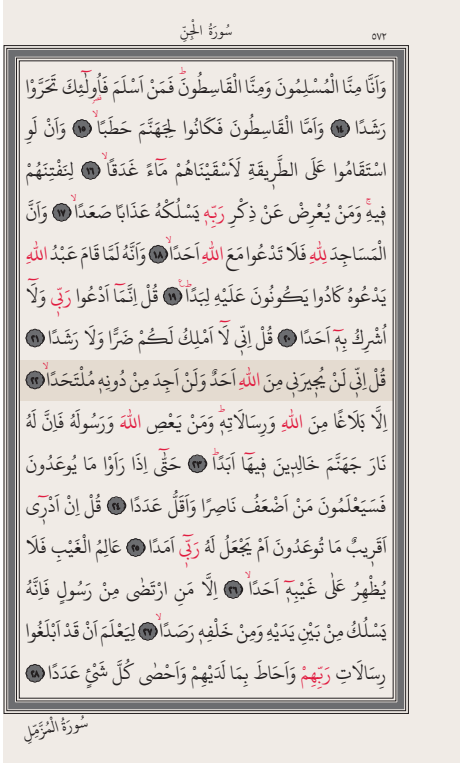 سُورَةُ الْجِنِّ
٥٧٢
وَاَنَّا مِنَّا الْمُسْلِمُونَ وَمِنَّا الْقَاسِطُونَۜ فَمَنْ اَسْلَمَ فَاُو۬لٰٓئِكَ تَحَرَّوْا
رَشَدًا ﴿١٤﴾ وَاَمَّا الْقَاسِطُونَ فَكَانُوا لِجَهَنَّمَ حَطَبًاۙ ﴿١٥﴾ وَاَنْ لَوِ
اسْتَقَامُوا عَلَى الطَّرٖيقَةِ لَاَسْقَيْنَاهُمْ مَٓاءً غَدَقًاۙ ﴿١٦﴾ لِنَفْتِنَهُمْ
فٖيهِۜ وَمَنْ يُعْرِضْ عَنْ ذِكْرِ رَبِّهٖ يَسْلُكْهُ عَذَابًا صَعَدًاۙ ﴿١٧﴾ وَاَنَّ
الْمَسَاجِدَ لِلّٰهِ فَلَا تَدْعُوا مَعَ اللّٰهِ اَحَدًاۙ ﴿١٨﴾ وَاَنَّهُ لَمَّا قَامَ عَبْدُ اللّٰهِ
يَدْعُوهُ كَادُوا يَكُونُونَ عَلَيْهِ لِبَدًاۜ ﴿١٩﴾ قُلْ اِنَّمَٓا اَدْعُوا رَبّٖي وَلَٓا
اُشْرِكُ بِهٖٓ اَحَدًا ﴿٢٠﴾ قُلْ اِنّٖي لَٓا اَمْلِكُ لَكُمْ ضَرًّا وَلَا رَشَدًا ﴿٢١﴾
قُلْ اِنّٖي لَنْ يُجٖيرَنٖي مِنَ اللّٰهِ اَحَدٌ وَلَنْ اَجِدَ مِنْ دُونِهٖ مُلْتَحَدًاۙ ﴿٢٢﴾
اِلَّا بَلَاغًا مِنَ اللّٰهِ وَرِسَالَاتِهٖۜ وَمَنْ يَعْصِ اللّٰهَ وَرَسُولَهُ فَاِنَّ لَهُ
نَارَ جَهَنَّمَ خَالِدٖينَ فٖيهَٓا اَبَدًاۜ ﴿٢٣﴾ حَتّٰٓى اِذَا رَاَوْا مَا يُوعَدُونَ
فَسَيَعْلَمُونَ مَنْ اَضْعَفُ نَاصِرًا وَاَقَلُّ عَدَدًا ﴿٢٤﴾ قُلْ اِنْ اَدْرٖٓي
اَقَرٖيبٌ مَا تُوعَدُونَ اَمْ يَجْعَلُ لَهُ رَبّٖٓي اَمَدًا ﴿٢٥﴾ عَالِمُ الْغَيْبِ فَلَا
يُظْهِرُ عَلٰى غَيْبِهٖٓ اَحَدًاۙ ﴿٢٦﴾ اِلَّا مَنِ ارْتَضٰى مِنْ رَسُولٍ فَاِنَّهُ
يَسْلُكُ مِنْ بَيْنِ يَدَيْهِ وَمِنْ خَلْفِهٖ رَصَدًاۙ ﴿٢٧﴾ لِيَعْلَمَ اَنْ قَدْ اَبْلَغُوا
رِسَالَاتِ رَبِّهِمْ وَاَحَاطَ بِمَا لَدَيْهِمْ وَاَحْصٰى كُلَّ شَيْئٍ عَدَدًا ﴿٢٨﴾
سُورَةُ الْمُزَّمِّلِ